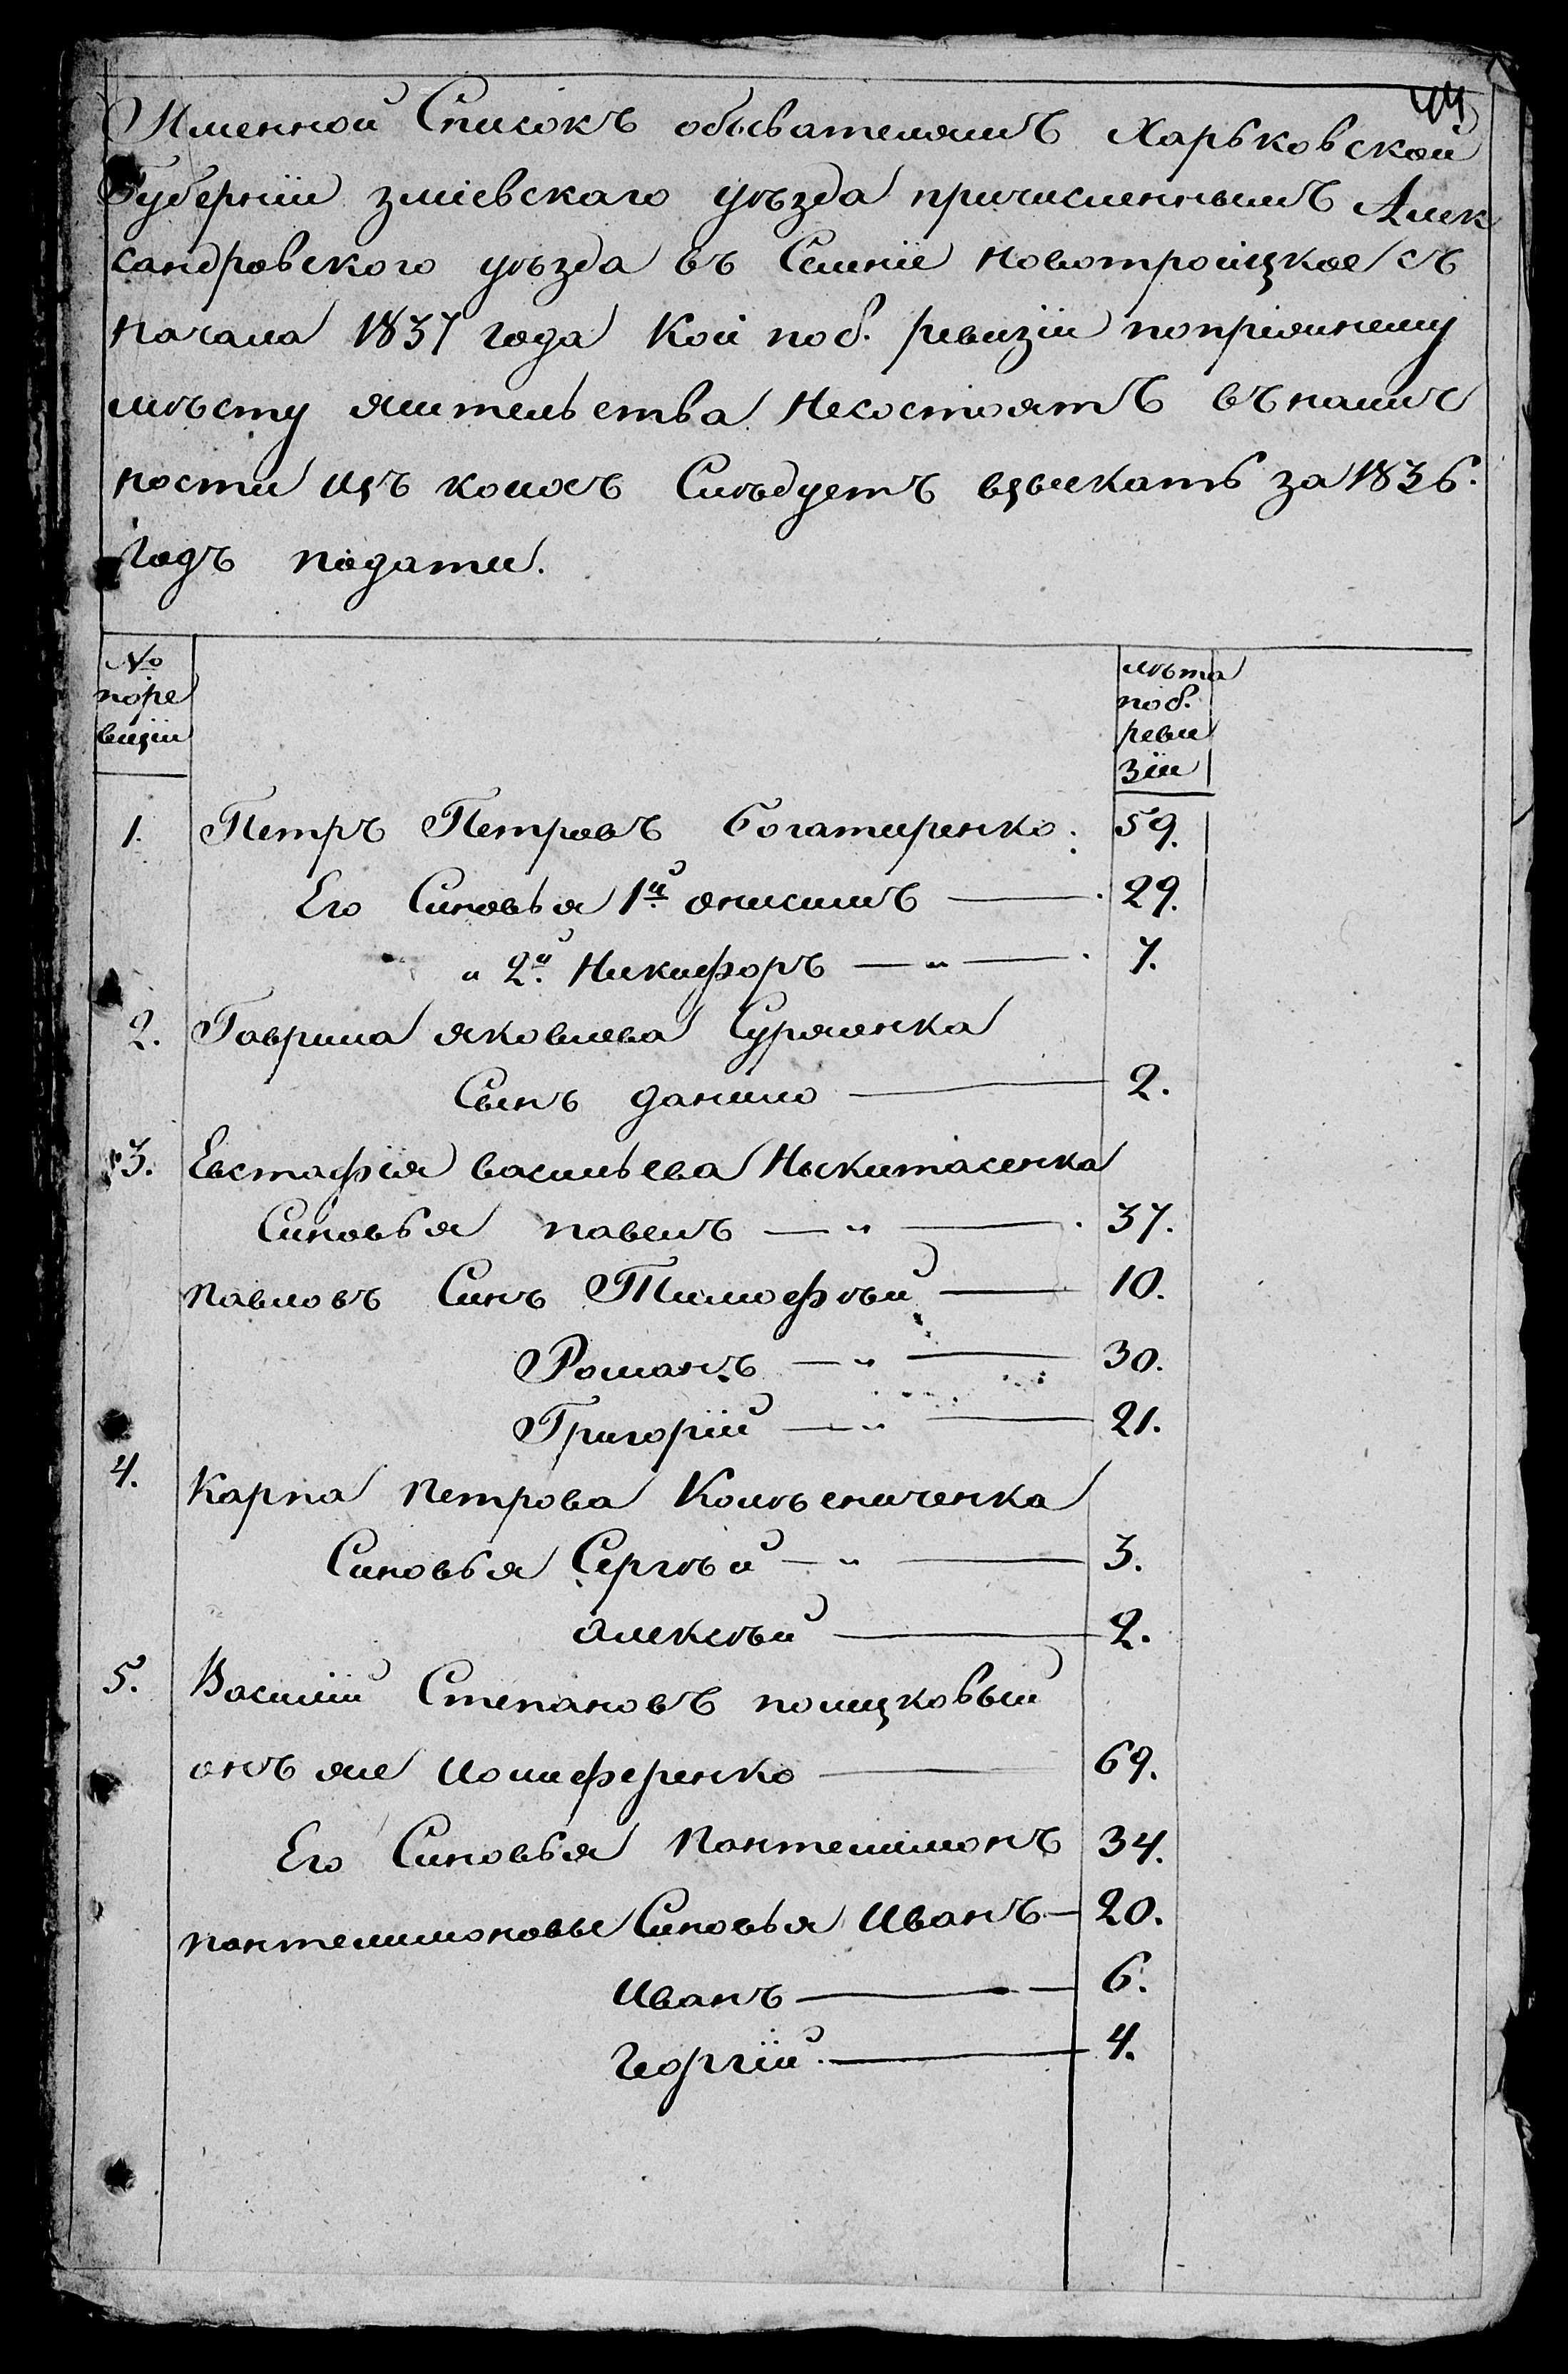 44
Именной Списокъ обывателямъ Харьковской
Губерніи зміевскаго уѣзда причисленнымъ Алек
сандровского уѣзда въ Селніе Новотроицкое съ
начала 1837 года Кои по 8. ревизіи попріжнему
мѣсту жительства Несостоятъ въ налич
ности изъ коихъ Слѣдуетъ взыскать за 1836.
Годъ подати.
№
поре
визіи
лѣта
по 8.
реви
зіи
1. Петръ Петровъ Богатиренко. 59.
Его Синовья 1й онисимъ — 29.
" 2й. Никифоръ — " — 7.
2. Гаврила яковлева Сурженка
Сынъ данило — 2.
3. Евстафія васильева Ныкитасенка
Синовья павелъ — " — 37.
павловъ Синъ Тимофѣй — 10.
Романъ — " — 30.
Григорій — " — 21.
4. Карпа Петрова Колѣсниченка
Синовья Сергѣй — " — 3.
Алексѣй — 2.
5. Василій Степановъ полицковый
онъ же Олиференко — 69.
Его Синовья Пантелимонъ 34.
пантелимоновы Синовья Иванъ — 20.
Иванъ — 6.
Георгій. — 4.